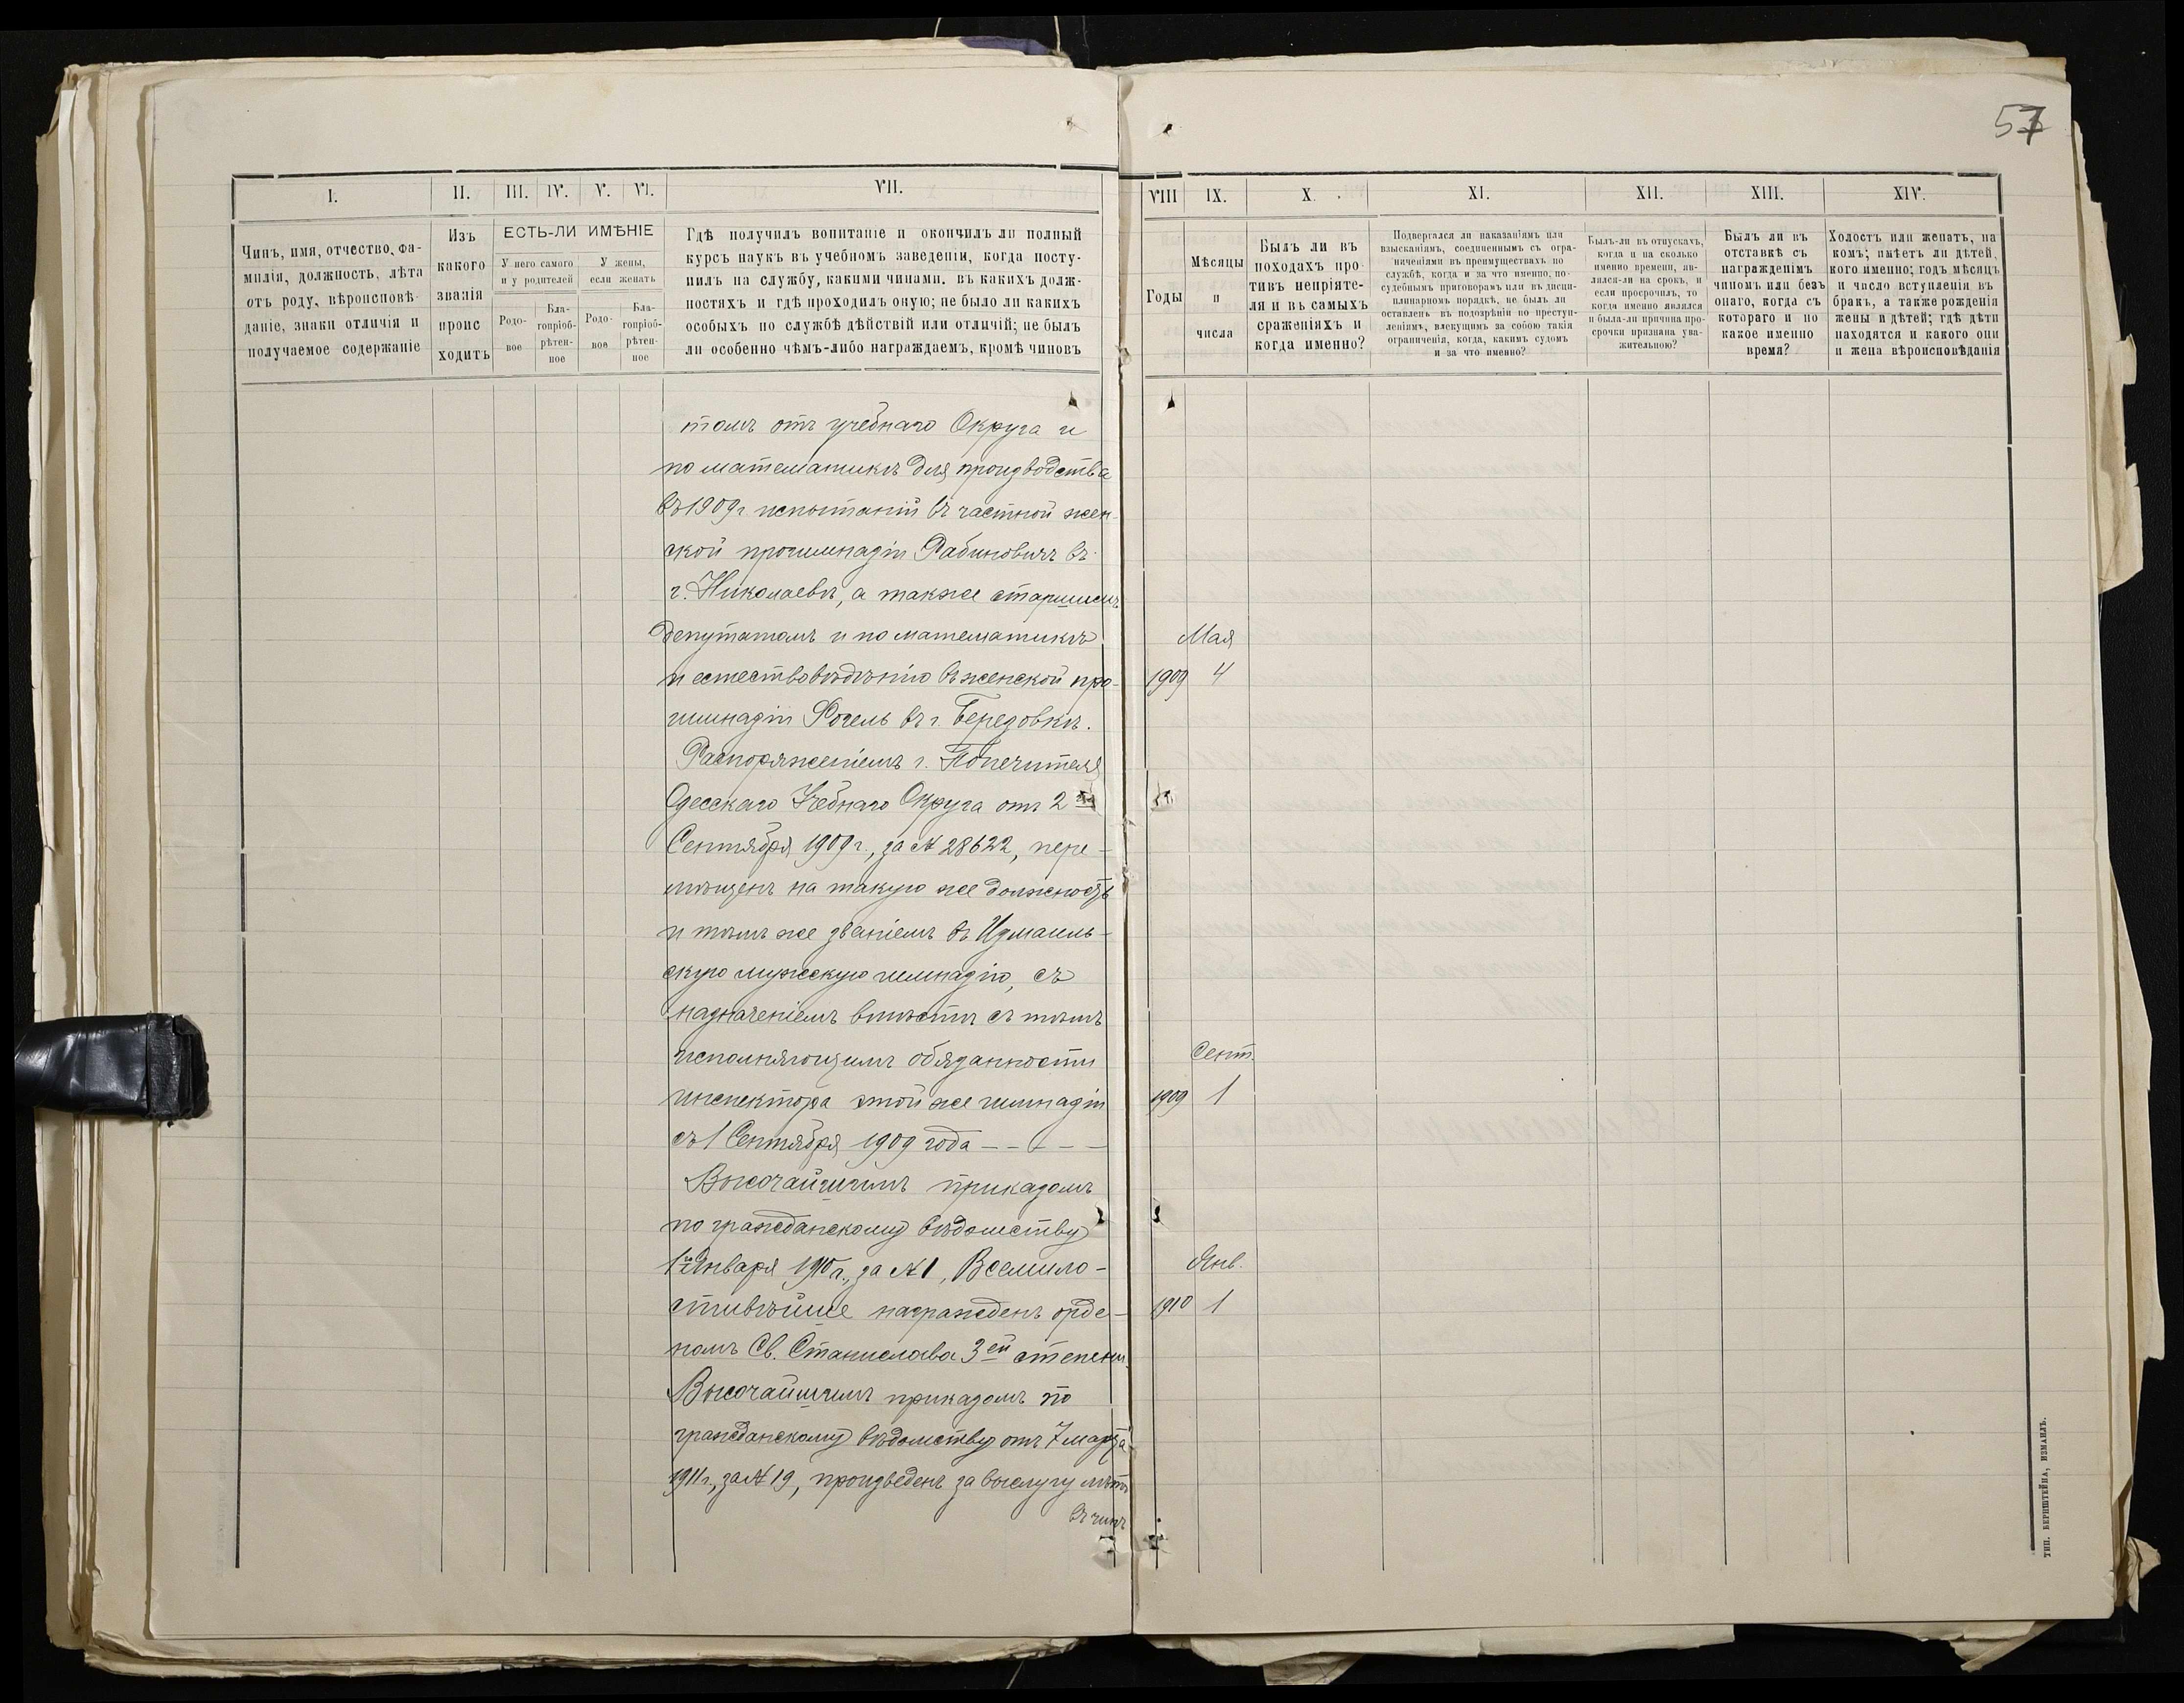 57
I.
II.
III.
IV.
V.
VI.
VII.
VIII
IX.
X.
XI.
XII.
XIII.
XIV.
Чинъ, имя, отчество, фа-
милія, должность, лѣта
отъ роду, вѣроисповѣ-
даніе, знаки отличія и
получаемое содержаніе
Изъ
какого
званія
проис
ходитъ
ЕСТЬ-ЛИ ИМѢНІЕ
У него самого
и у родителей
У жены,
если женатъ
Родо-
вое
Бла-
гопріоб-
рѣтен-
ное
Родо-
вое
Бла-
гопріоб-
рѣтен-
ное
Гдѣ получилъ вопитаніе и окончилъ ли полный
курсъ наукъ въ учебномъ заведеніи, когда посту-
пилъ на службу, какими чинами. въ какихъ долж-
ностяхъ и гдѣ проходилъ оную; не было ли какихъ
особыхъ по службѣ дѣйствій или отличій; не былъ
ли особенно чѣмъ-либо награждаемъ, кромѣ чиновъ
Годы
Мѣсяцы
и
числа
Былъ ли въ
походахъ про
тивъ непріяте-
ля и въ самыхъ
сраженіяхъ и
когда именно?
Подвергался ли наказаніямъ или
взысканіямъ, соединеннымъ съ огра-
ниченіями въ преимуществахъ по
службѣ, когда и за что именно, по-
судебнымъ приговорамъ или въ дисци-
плинарномъ порядкѣ, не былъ ли
оставленъ въ подозрѣніи по преступ-
леніямъ, влекущимъ за собою такія
ограниченія, когда, какимъ судомъ
и за что именно?
Былъ-ли въ отпускахъ,
когда и на сколько
именно времени, яв-
лялся-ли на срокъ, и
если просрочилъ, то
когда именно явился
и была-ли причина про-
срочки признана ува-
жительною?
Былъ ли въ
отставкѣ съ
награжденімъ
чиномъ или безъ
онаго, когда съ
котораго и по
какое именно
время?
Холостъ или женатъ, на
комъ; имѣетъ ли дѣтей,
кого именно; годъ мѣсяцъ
и число вступленія въ
бракъ, а также рожденія
жены и дѣтей; гдѣ дѣти
находятся и какого они
и жена вѣроисповѣданія
томъ отъ учебнаго Округа и
по математикѣ для производства
въ 1909 г. испытаній въ частной жен-
ской прогимназіи Рабиновичъ въ
г. Николаевѣ, а также старшимъ
депутатомъ и по математикѣ
и естествовѣдѣнію въ женской про-
гимназіи Фогель въ г. Березовкѣ.
Мая
1909 4
Распоряженіемъ г. Попечителя
Одесскаго Учебнаго Округа отъ 2
Сентября 1909 г., за № 28622, пере-
мѣщенъ на такую же должность
и тѣмъ же званіемъ въ Измаиль-
скую мужскую гимназію, съ
назначеніемъ вмѣстѣ съ тѣмъ
исполняющимъ обязанности
инспектора этой же гимназіи
съ 1 Сентября 1909 года - - - - -
Сент.
1909 1
Высочайшимъ приказомъ
по гражданскому вѣдомству
1го Января 1910 г., за № 1, Всемило-
стивѣйше награжденъ орде-
номъ Св. Станислава 3ей степени.
Янв.
1910 1
Высочайшимъ приказомъ по
гражданскому вѣдомству отъ 7 марта
1911 г., за № 19, произведенъ за выслугу лѣтъ
въ чинъ
ТИП. БЕРНШТЕЙНА, ИЗМАИЛЪ.